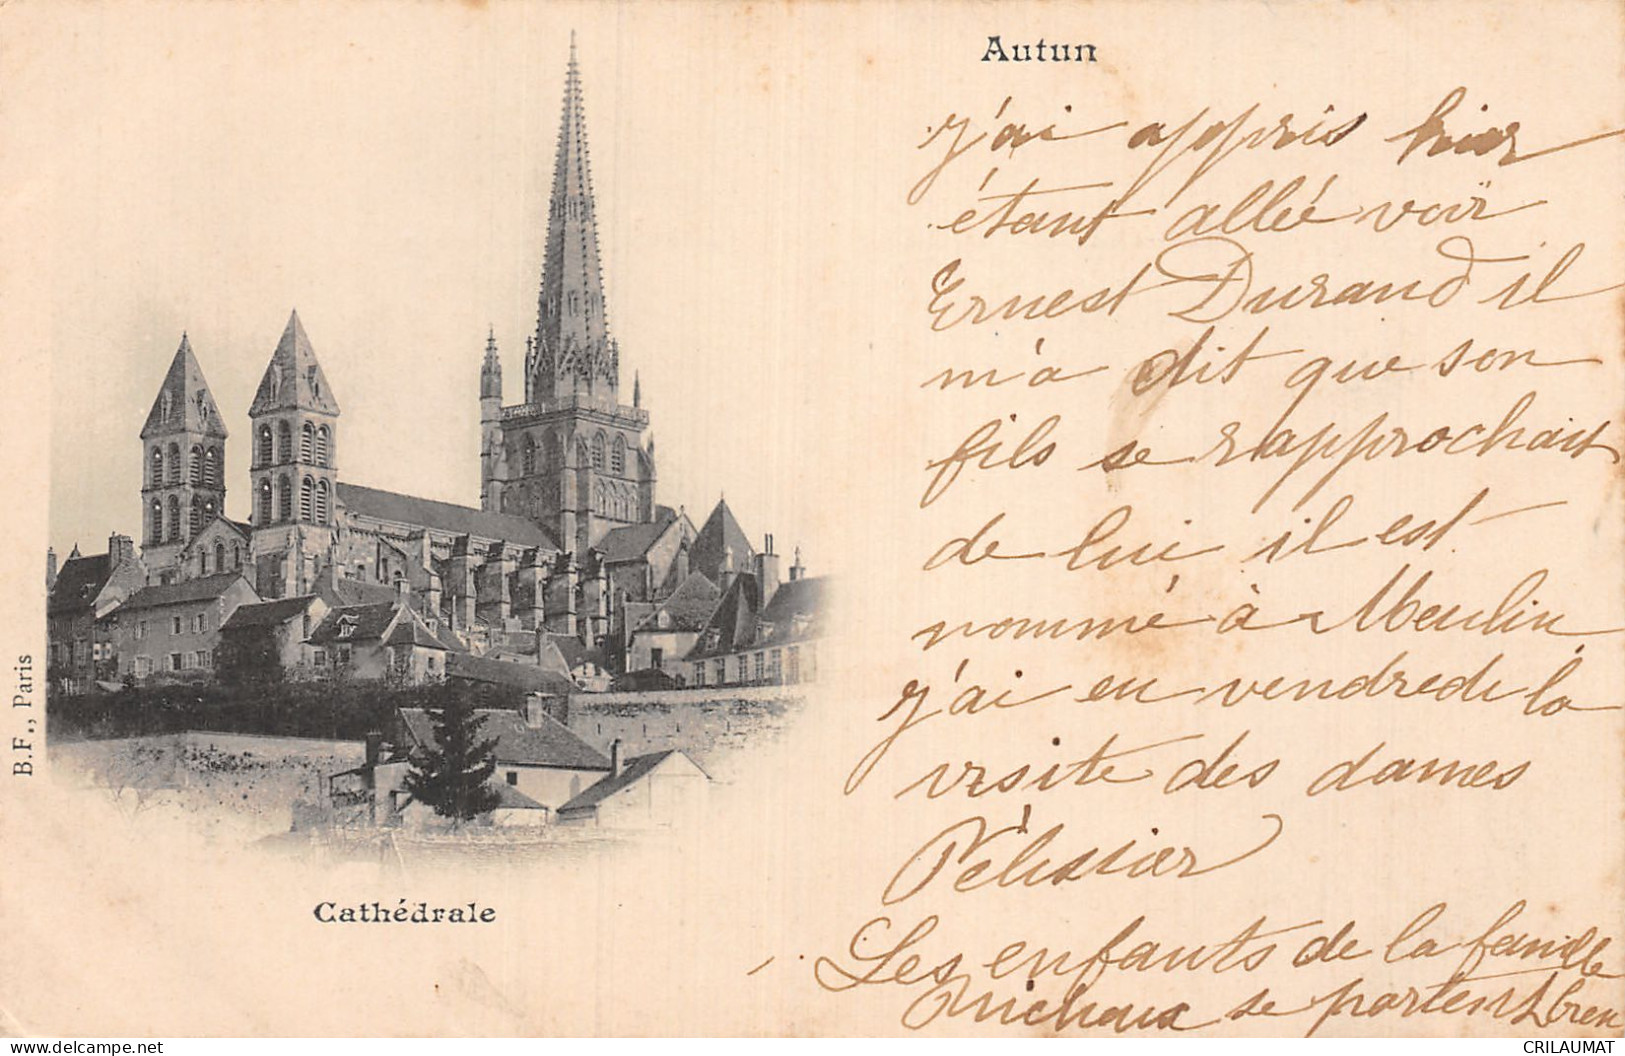 Autun
j'ai appris hier
étant allée voir
Ernest Durand il
m'a dit que son
fils se rapprochait
de lui il est
nommé à Moulin,
j'ai eu vendredi la
visite des dames
Pélissier
Les enfants de la famille
Michaux se portent bien
Cathédrale
B.F., Paris
delcampe.net
CRILAUMAT